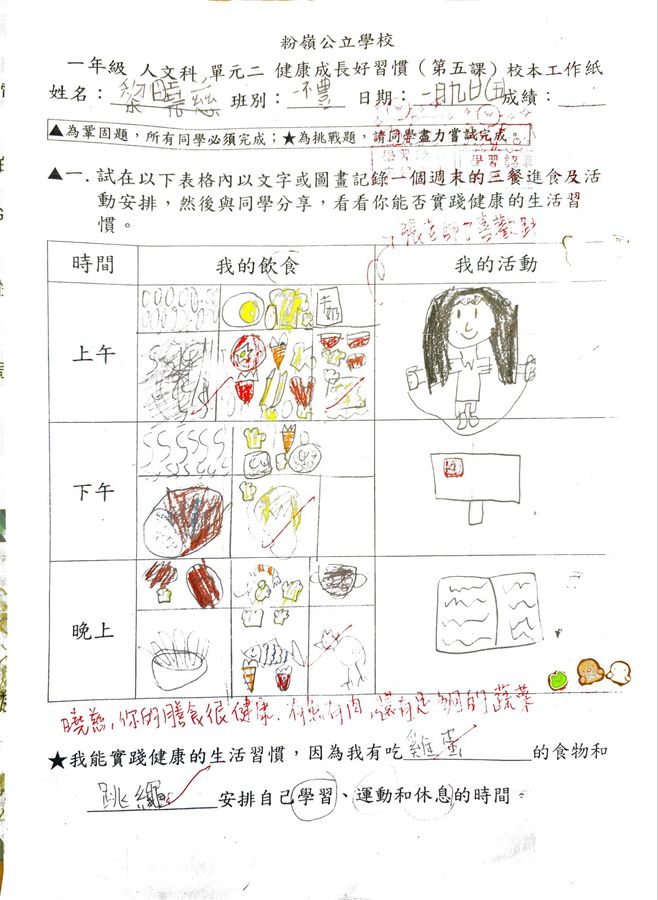 粉嶺公立學校
一年級 人文科 單元二 健康成長好習慣（第五課）校本工作紙
姓名：黎曉慈 班別：一禮 日期：一月九日(五) 成績：
▲為鞏固題，所有同學必須完成；★為挑戰題，請同學盡力嘗試完成。
學習 學習認真
▲一. 試在以下表格內以文字或圖畫記錄一個週末的三餐進食及活
動安排，然後與同學分享，看看你能否實踐健康的生活習
慣。
時間 我的飲食 我的活動
上午
牛奶
下午
晚上
曉慈，你的膳食很健康，有魚有肉，還有足夠的蔬菜
★我能實踐健康的生活習慣，因為我有吃雞蛋的食物和
跳繩安排自己學習、運動和休息的時間。